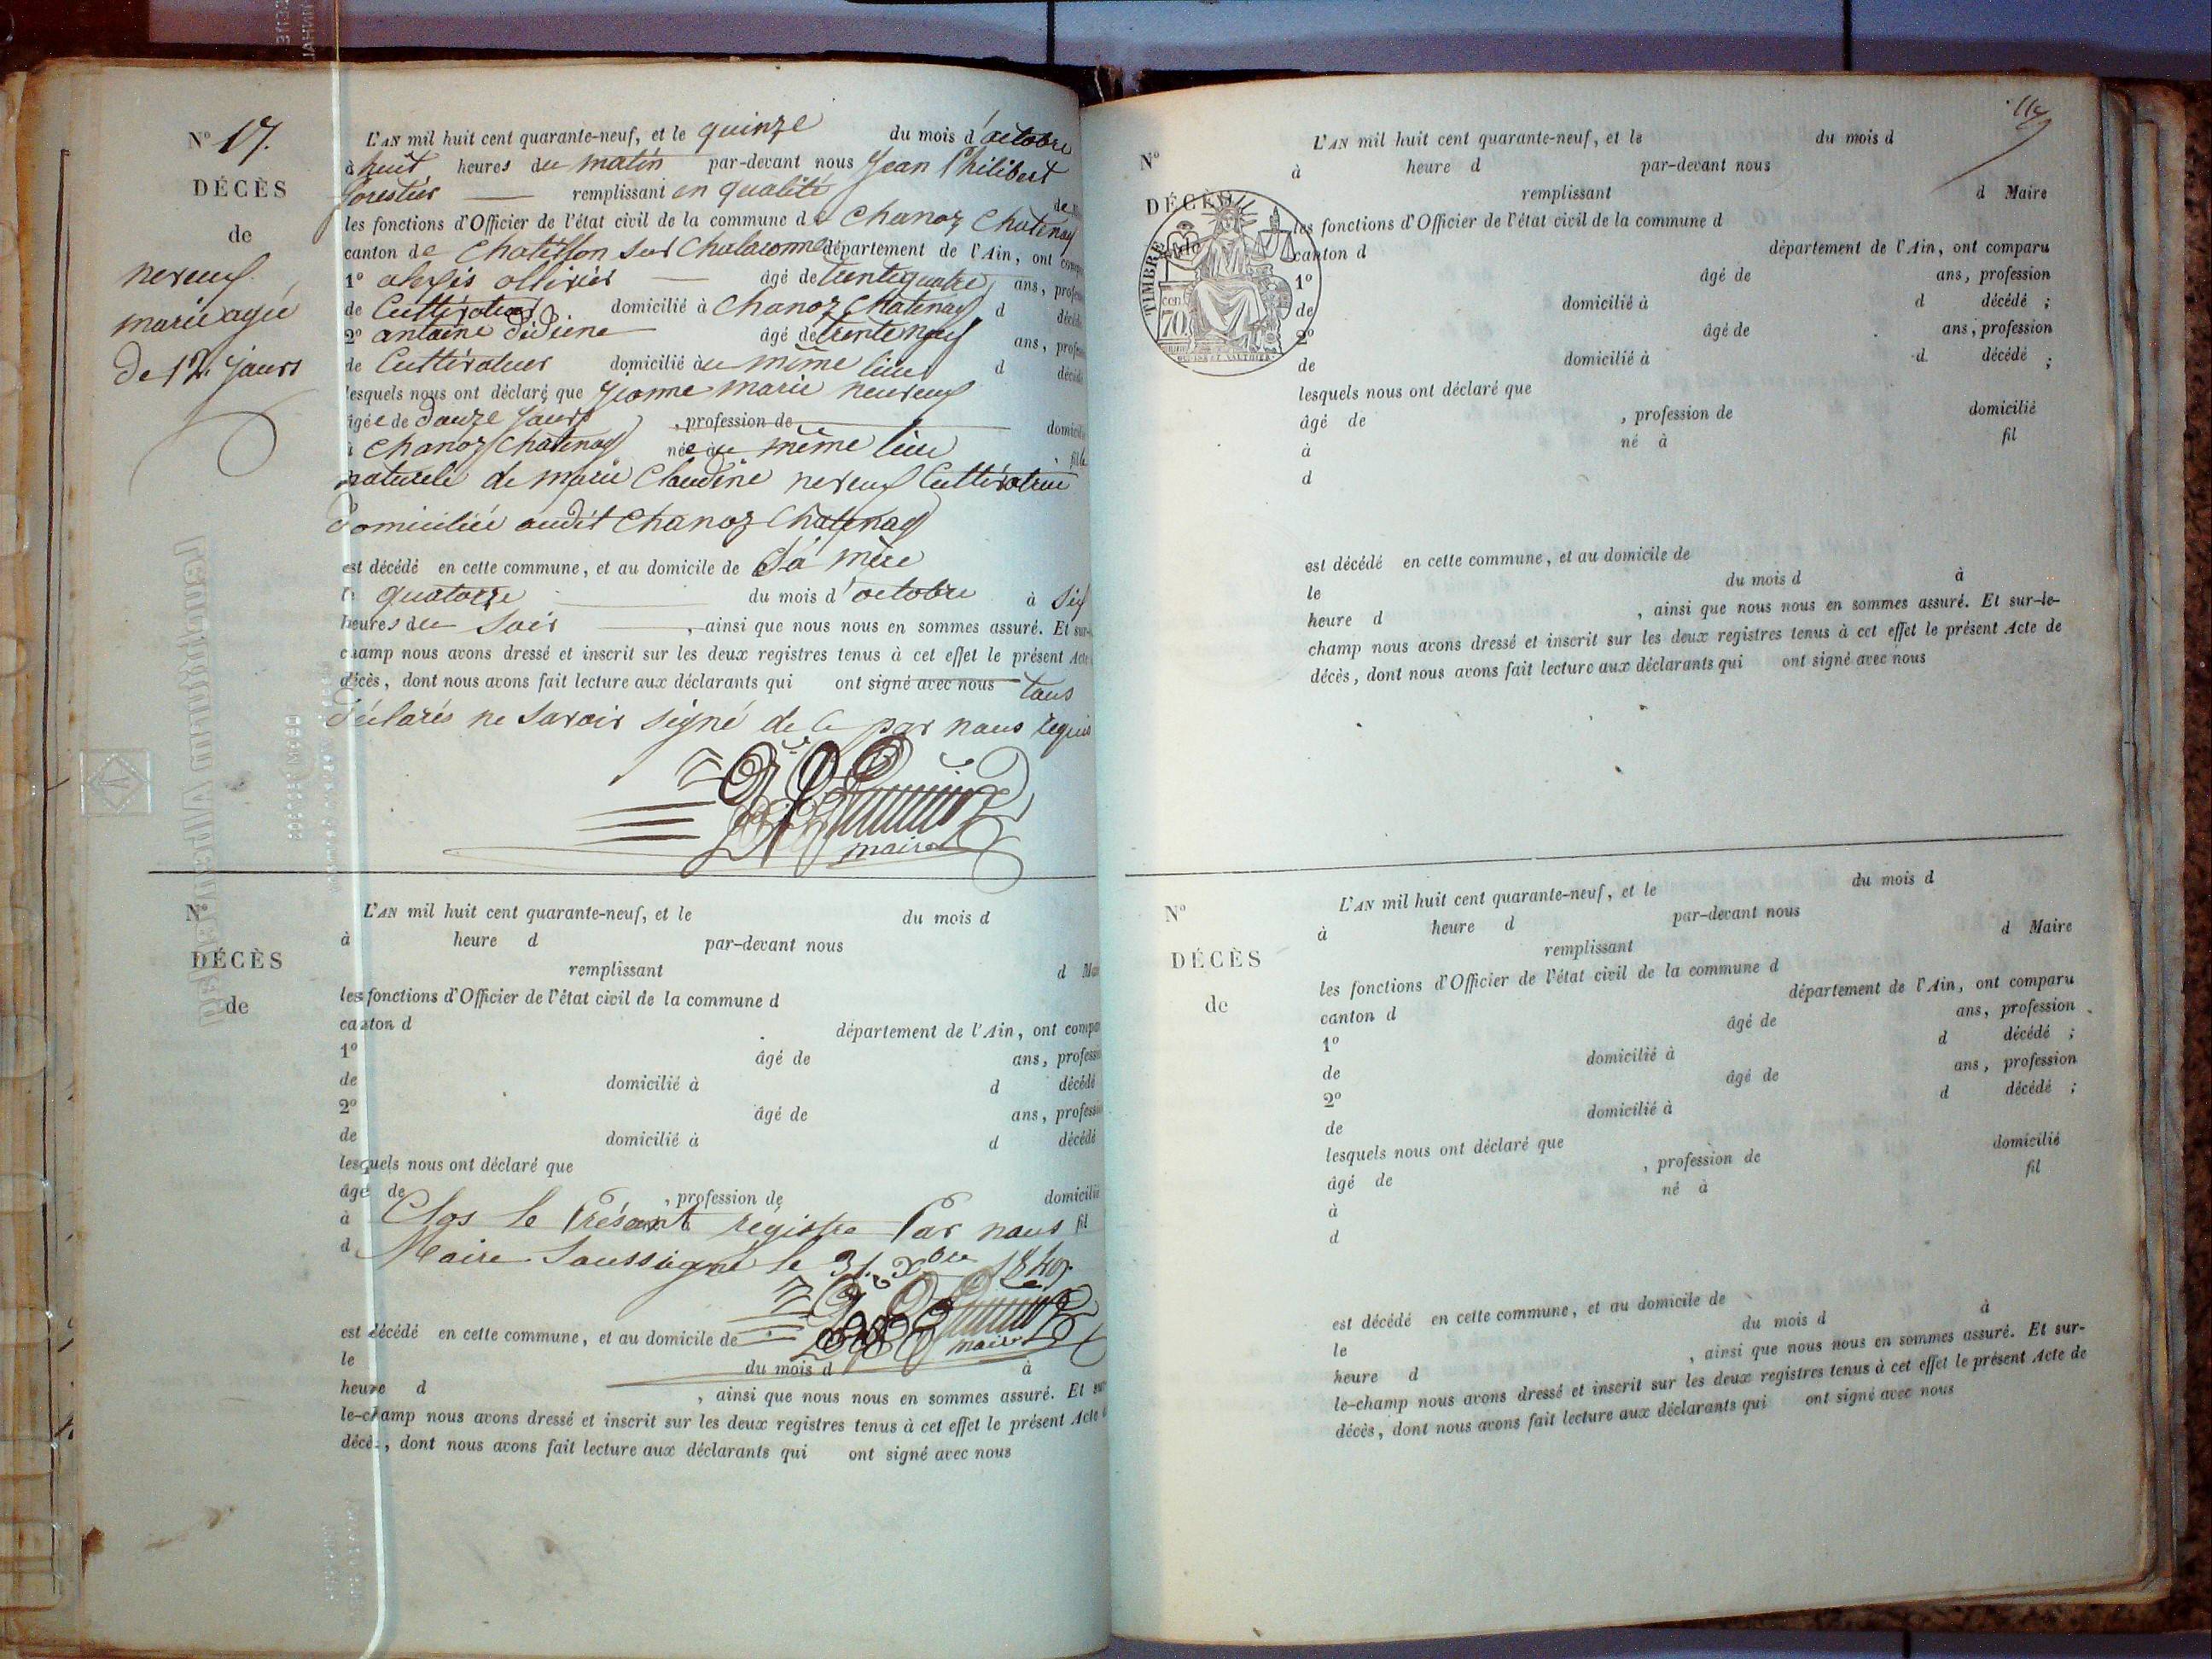 N° 17.
DÉCÈS
de
nereuf
marie agée
de 12 jours
L'AN mil huit cent quarante-neuf, et le quinze du mois d'octobre
à huit heures du matin par-devant nous Jean Philibert
forestier remplissant en qualité de
les fonctions d'Officier de l'état civil de la commune de Chanoz Chatenay
canton de Chatillon sur Chalaronne département de l'Ain, ont
1° alexis ollivier âgé de trentequatre ans,
de Cultivateur domicilié à Chanoz Chatenay d décédé
2° antoine âgé de trenteneuf ans,
de Cultivateur domicilié au même lieu d décédé
lesquels nous ont déclaré que marie neureuf
âgée de douze jours , profession de
à Chanoz Chatenay née au même lieu , fille
naturele de marie Claudine nereuf Cultivatrice
domiciliée audit Chanoz Chatenay
est décédé en cette commune, et au domicile de Sa mère
le quatorze du mois d'octobre à Six
heures du Soir , ainsi que nous nous en sommes assuré. Et sur-
champ nous avons dressé et inscrit sur les deux registres tenus à cet effet le présent Acte
décès, dont nous avons fait lecture aux déclarants qui ont signé avec nous tous
déclarés ne Savoir signé de ce par nous requis
maire
N°
DÉCÈS
de
L'AN mil huit cent quarante-neuf, et le du mois d
à heure d par-devant nous
remplissant d
les fonctions d'Officier de l'état civil de la commune d
canton d département de l'Ain, ont
1° âgé de ans,
de domicilié à d décédé
2° âgé de ans,
de domicilié à d décédé
lesquels nous ont déclaré que
âgé de , profession de domicilié
à Clos le Présent régistre Par nous fil
d Maire Soussigné le 31. Xbre 1849.
maire
est décédé en cette commune, et au domicile de
le du mois d à
heure d , ainsi que nous nous en sommes assuré. Et sur
le-champ nous avons dressé et inscrit sur les deux registres tenus à cet effet le présent Acte
décès, dont nous avons fait lecture aux déclarants qui ont signé avec nous
N°
DÉCÈS
de
TIMBRE
cent
70
L'AN mil huit cent quarante-neuf, et le du mois d
à heure d par-devant nous
remplissant d Maire
les fonctions d'Officier de l'état civil de la commune d
canton d département de l'Ain, ont comparu
1° âgé de ans, profession
de domicilié à d décédé ;
2° âgé de ans, profession
de domicilié à d décédé ;
lesquels nous ont déclaré que
âgé de , profession de domicilié
à né à fil
d
est décédé en cette commune, et au domicile de
le du mois d à
heure d , ainsi que nous nous en sommes assuré. Et sur-le-
champ nous avons dressé et inscrit sur les deux registres tenus à cet effet le présent Acte de
décès, dont nous avons fait lecture aux déclarants qui ont signé avec nous
N°
DÉCÈS
de
L'AN mil huit cent quarante-neuf, et le du mois d
à heure d par-devant nous
remplissant d Maire
les fonctions d'Officier de l'état civil de la commune d
canton d département de l'Ain, ont comparu
1° âgé de ans, profession
de domicilié à d décédé ;
2° âgé de ans, profession
de domicilié à d décédé ;
lesquels nous ont déclaré que
âgé de , profession de domicilié
à né à fil
d
est décédé en cette commune, et au domicile de
le du mois d à
heure d , ainsi que nous nous en sommes assuré. Et sur-
le-champ nous avons dressé et inscrit sur les deux registres tenus à cet effet le présent Acte de
décès, dont nous avons fait lecture aux déclarants qui ont signé avec nous